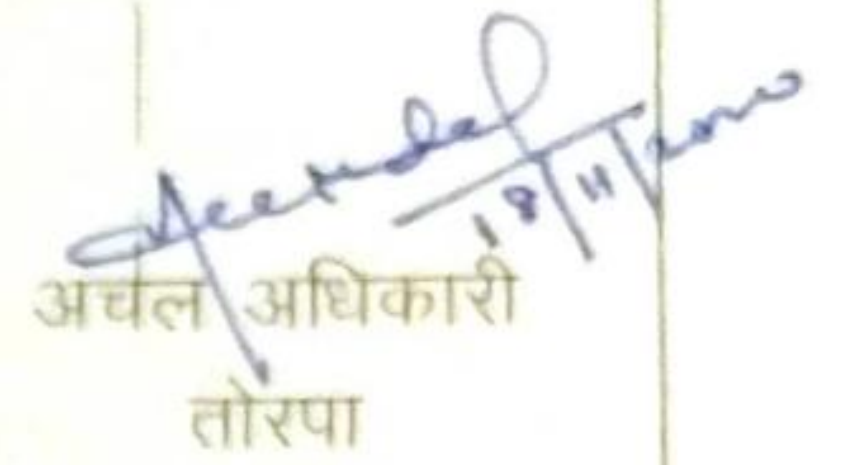 18/11/2000
अचंल अधिकारी
तोरपा